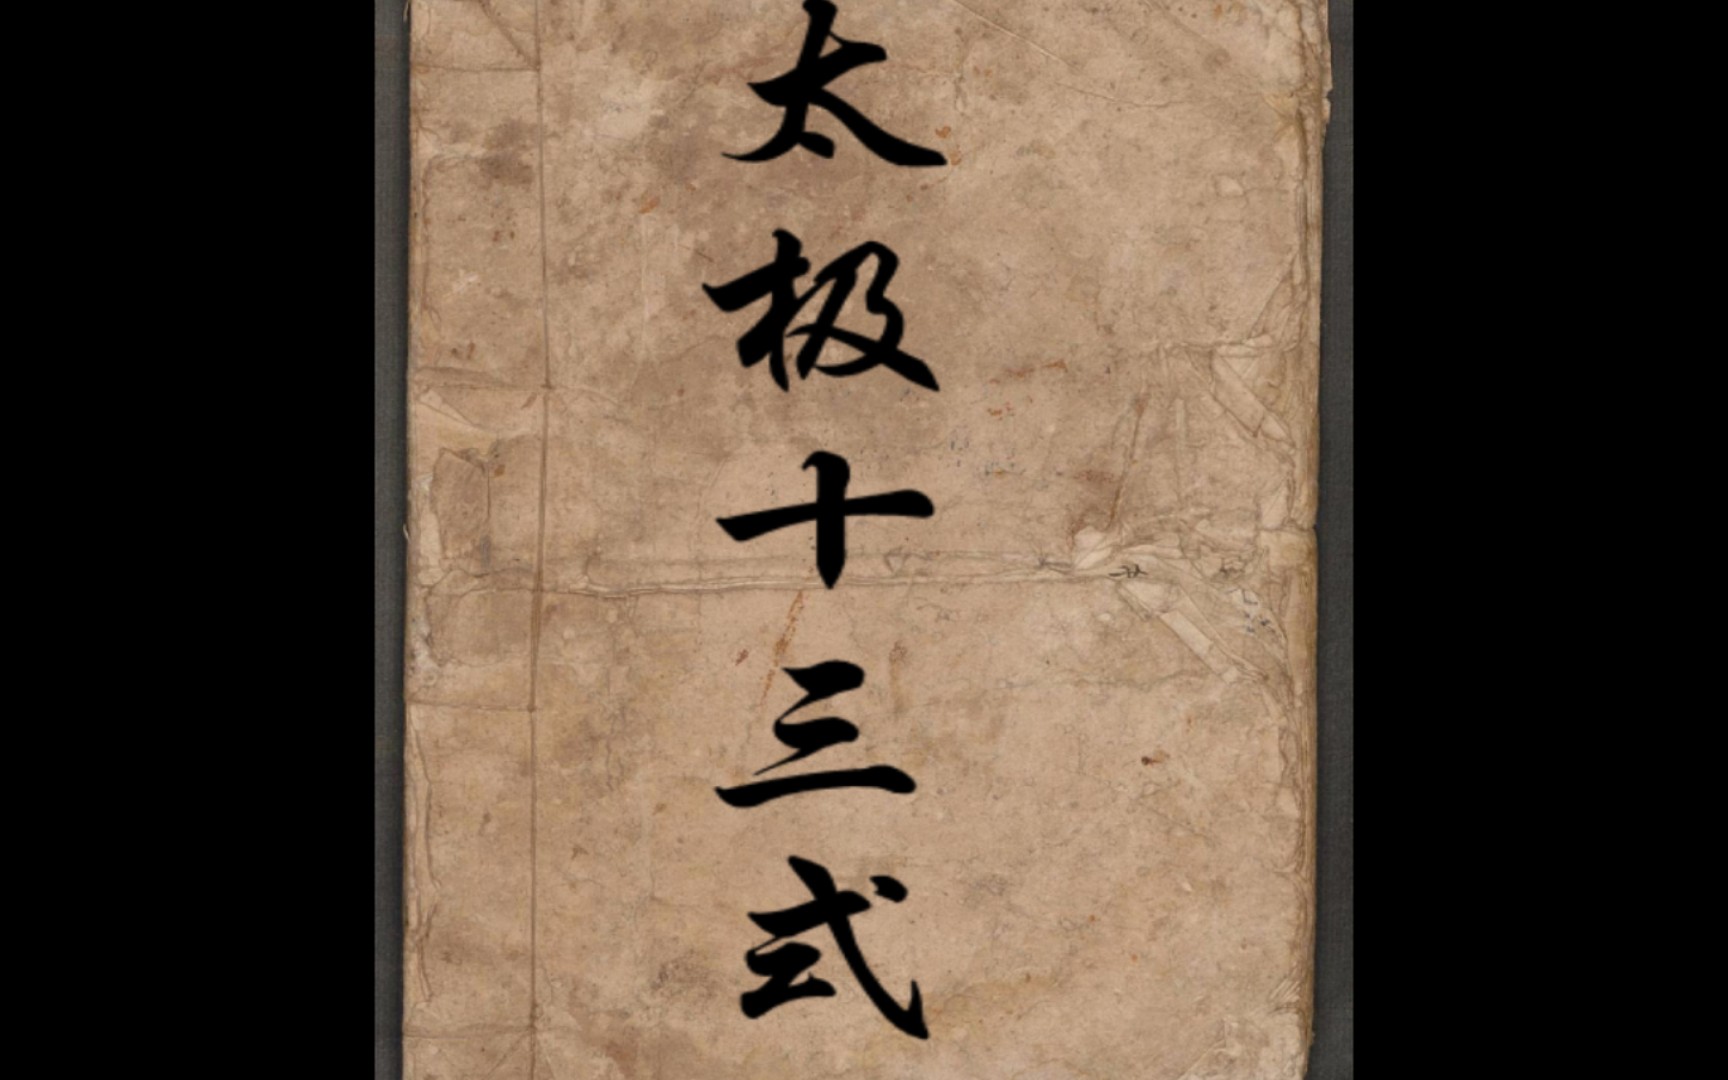 太极十三式